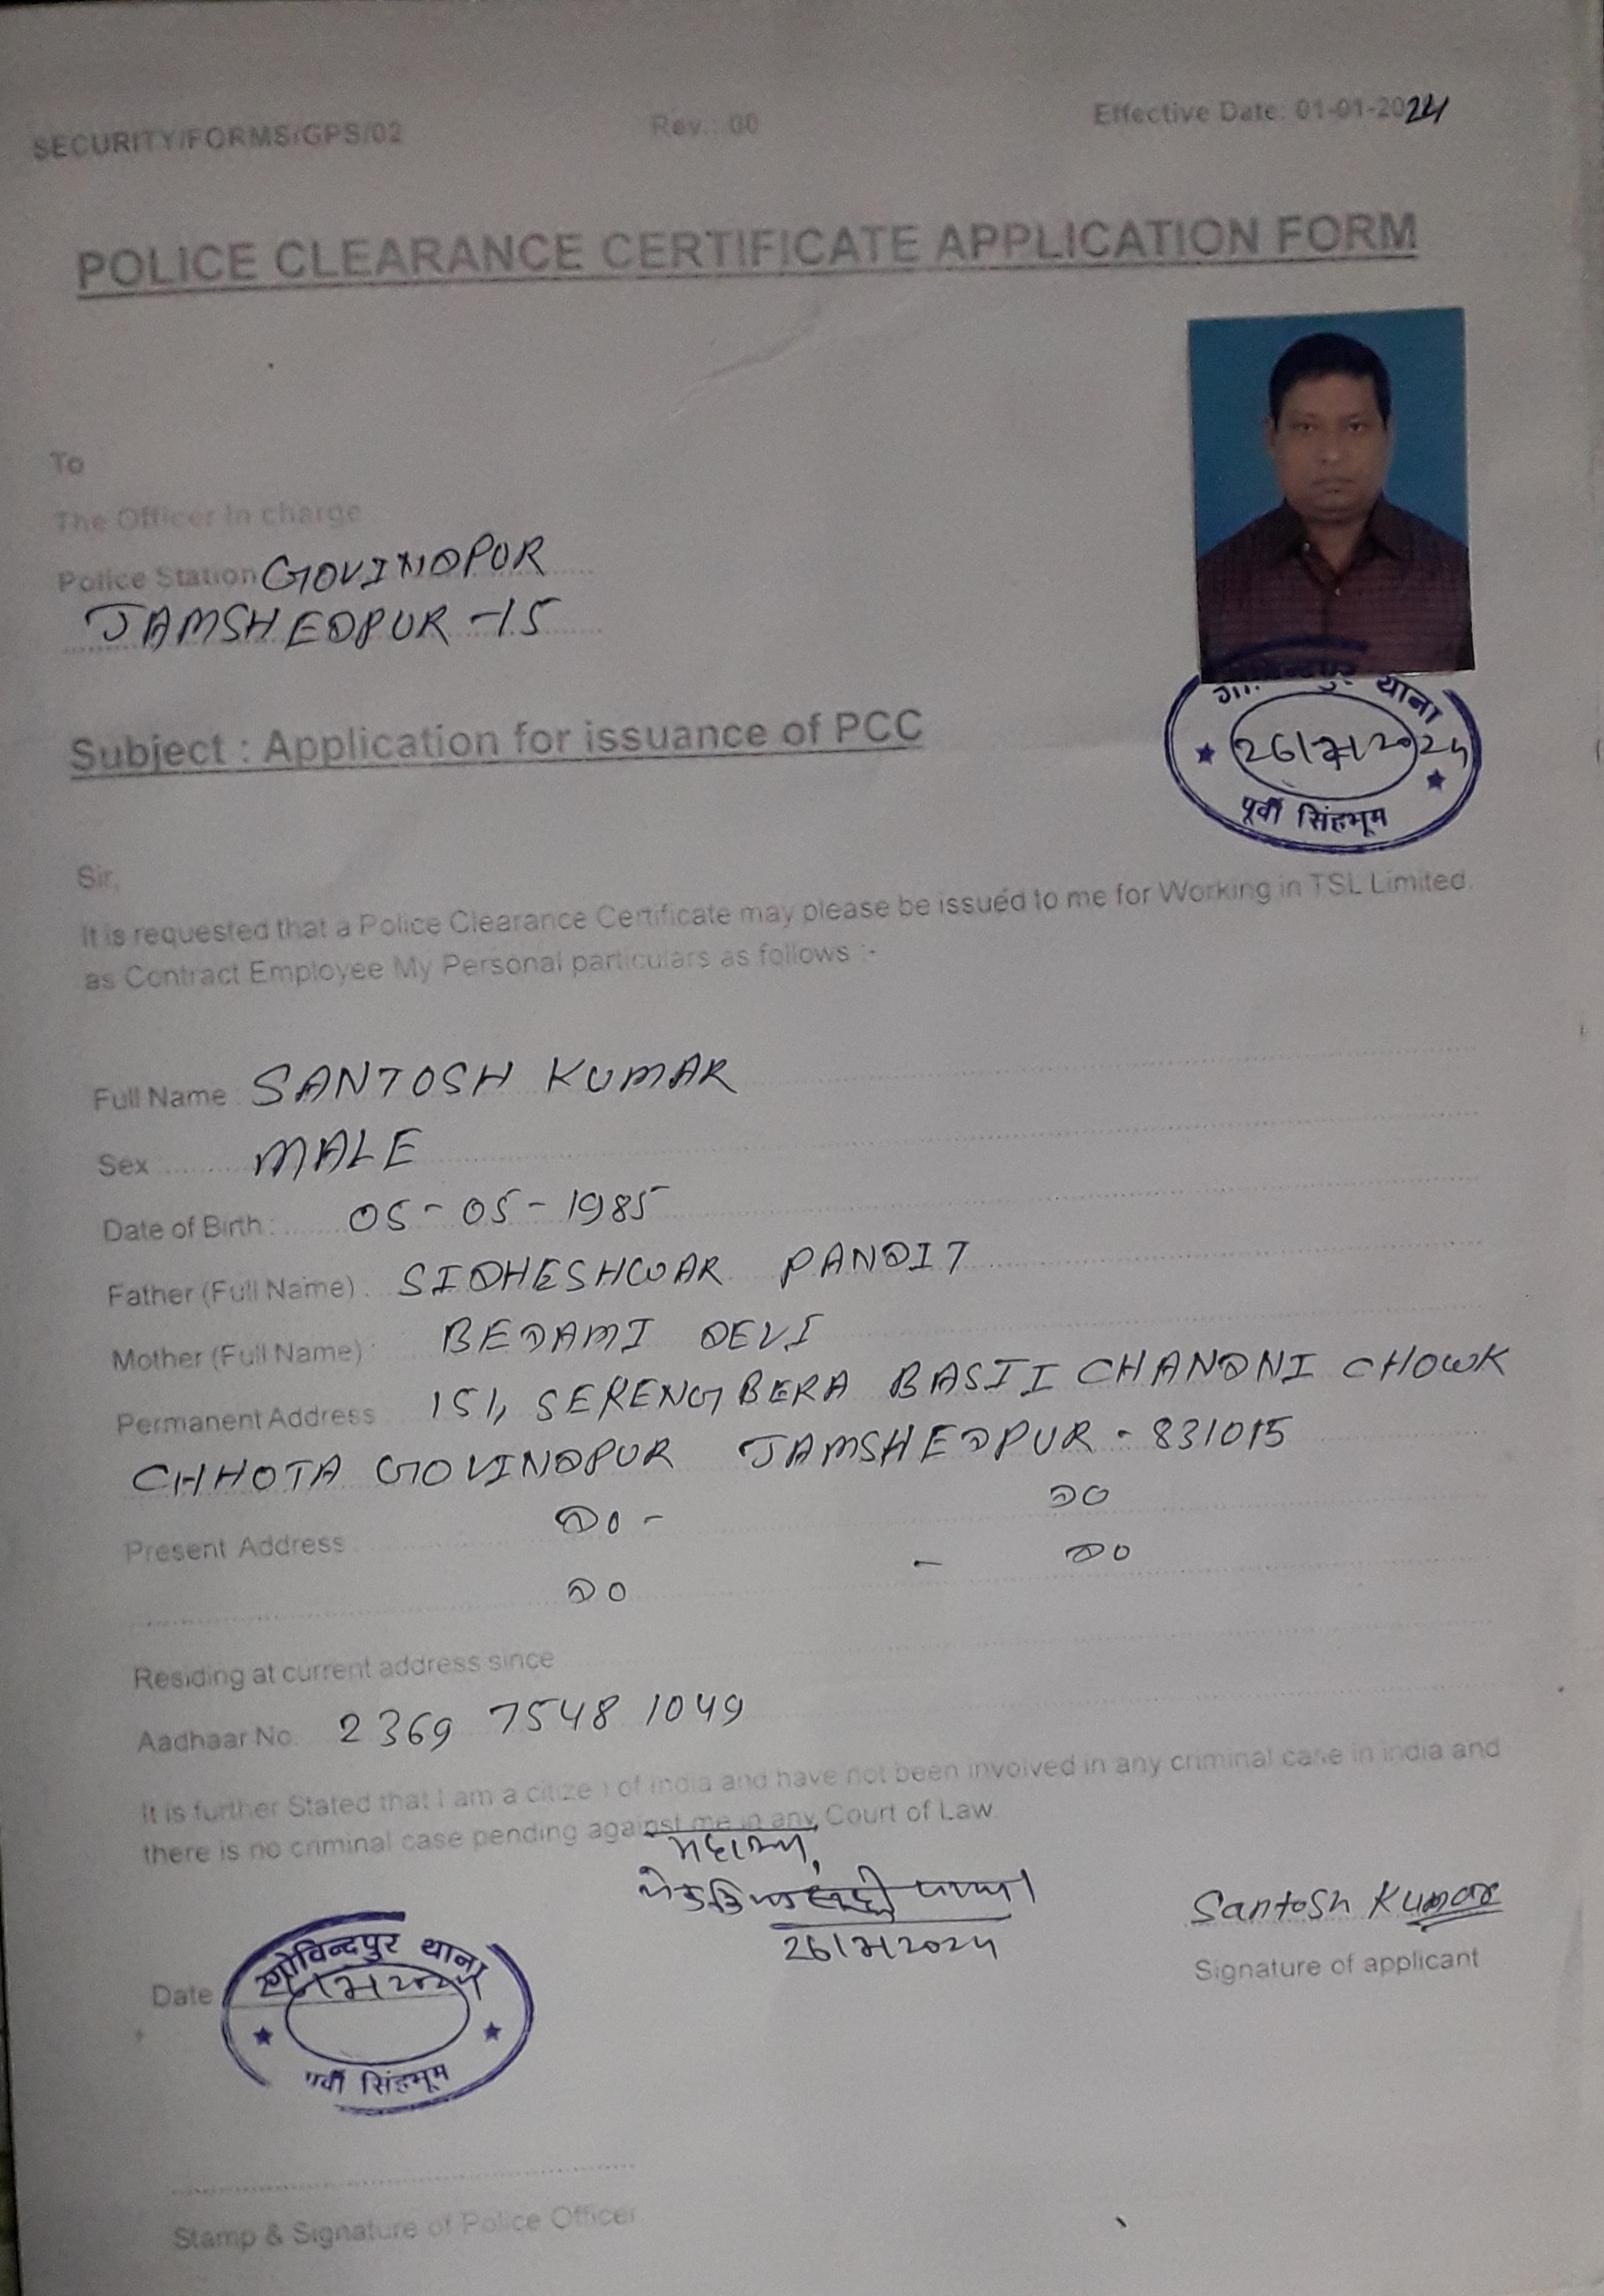 SECURITY/FORMS/GPS/02 Rev.: 00 Effective Date: 01-01-2024
POLICE CLEARANCE CERTIFICATE APPLICATION FORM
To
The Officer In charge
Police Station GOVINDPUR
JAMSHEDPUR -15
गोविन्दपुर थाना
पूर्वी सिंहभूम
Subject : Application for issuance of PCC
Sir,
It is requested that a Police Clearance Certificate may please be issued to me for Working in TSL Limited.
as Contract Employee My Personal particulars as follows :-
Full Name : SANTOSH KUMAR
Sex MALE
Date of Birth : 05-05-1985
Father (Full Name) . SIDHESHWAR PANDIT
Mother (Full Name) : BEDAMI DEVI
Permanent Address 151, SERENGBERA BASTI CHANDNI CHOWK
CHHOTA GOVINDPUR JAMSHEDPUR - 831015
Present Address DO - DO
DO - DO
Residing at current address since
Aadhaar No. 2369 7548 1049
It is further Stated that I am a citizen of India and have not been involved in any criminal case in india and
there is no criminal case pending against me in any Court of Law.
Santosh Kumar
Signature of applicant
Date
गोविन्दपुर थाना
पूर्वी सिंहभूम
Stamp & Signature of Police Officer